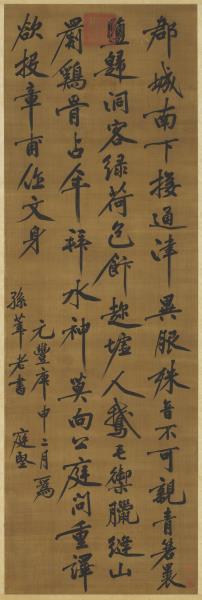 郡城南下接通津異服殊音不可親青箬裹
鹽歸洞客綠荷包飰趂墟人鵝毛禦臘縫山
罽鷄骨占年拜水神莫向公庭問重譯
欲投章甫作文身
元豐庚申二月為
孫莘老書 庭堅